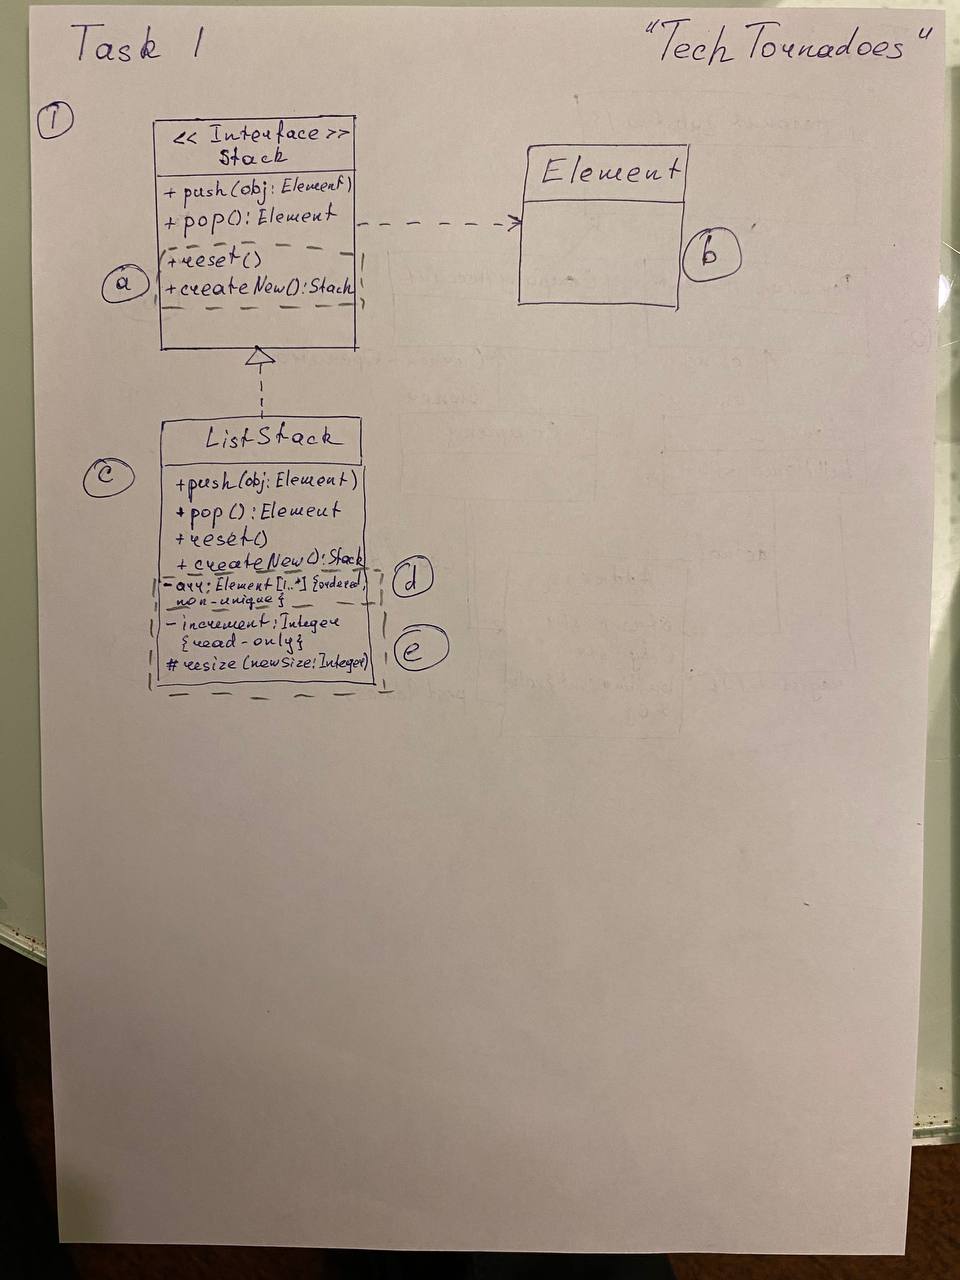 Task 1
"Tech Tornadoes"
1
<< Interface >>
Stack
+ push(obj: Element)
+ pop(): Element
+ reset()
+ createNew(): Stack
a
Element
b
ListStack
c
+ push(obj: Element)
+ pop(): Element
+ reset()
+ createNew(): Stack
- arr: Element [1..*] {ordered,
non-unique}
d
- increment: Integer
{read-only}
# resize(newSize: Integer)
e